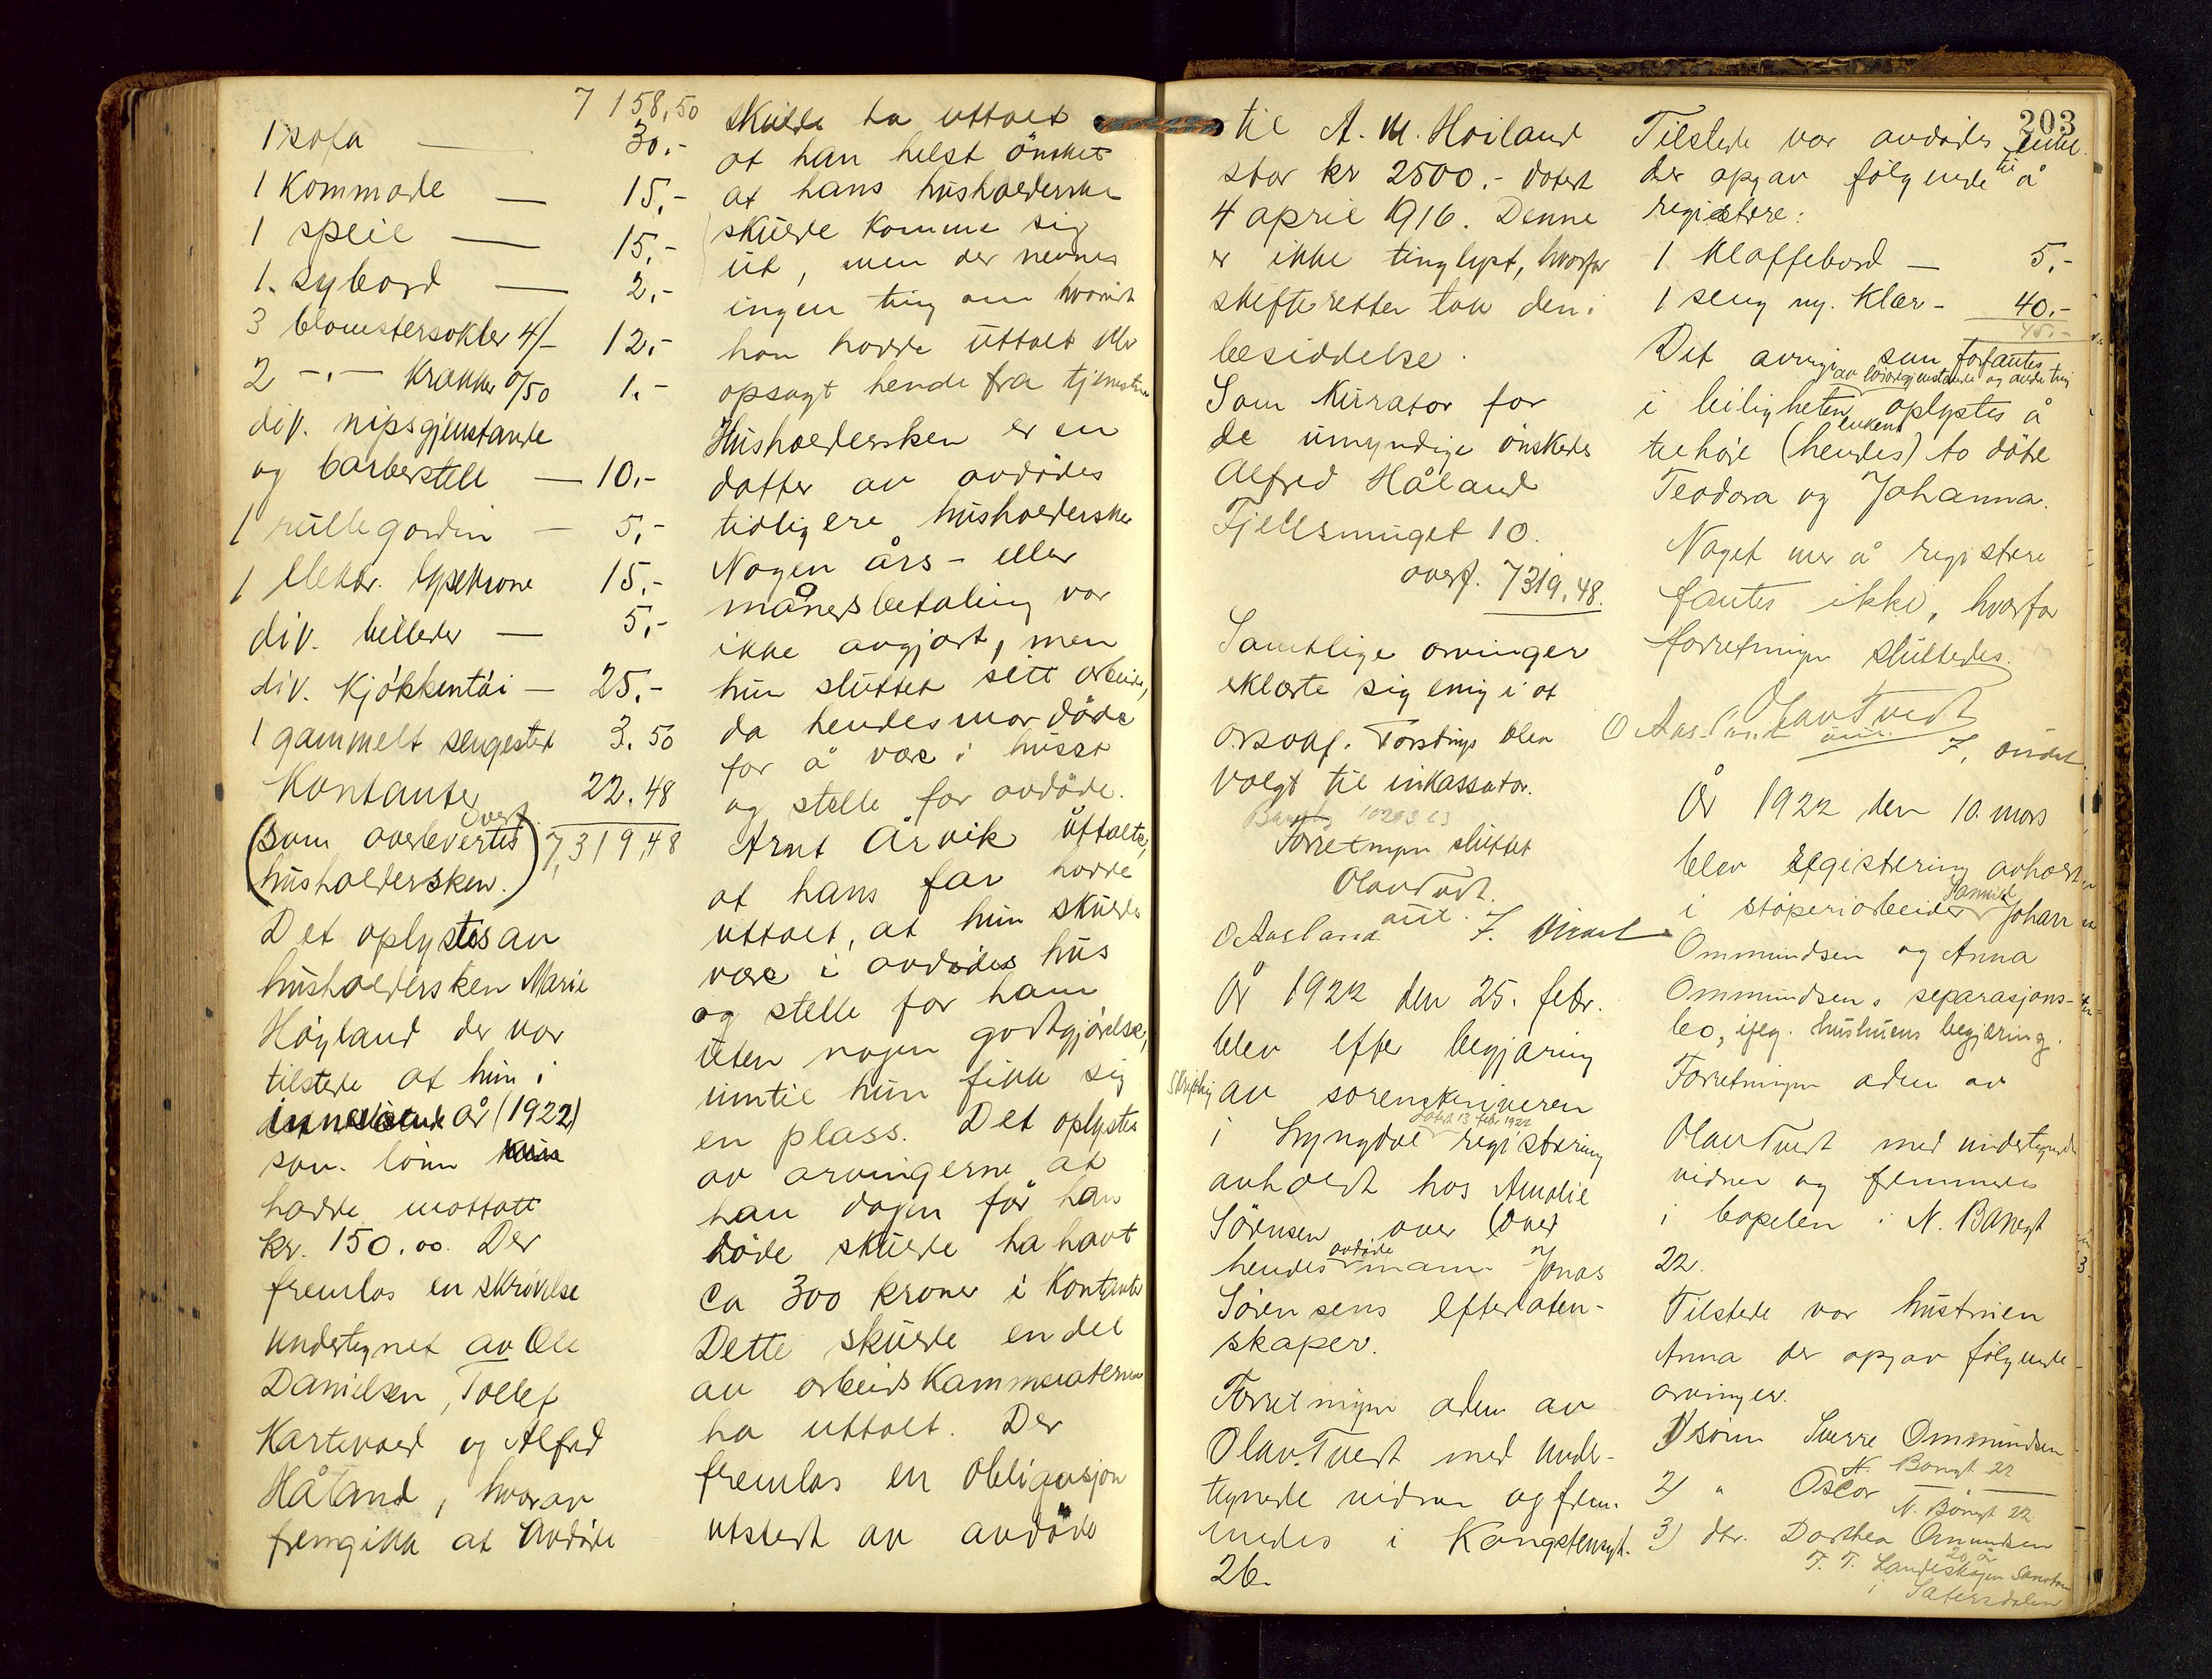 7 158,50
1 sofa — 30.-
1 kommode — 15,-
1 speil — 15,-
1. sybord — 2,-
3 blomstersokler 4/- 12,-
2 -"- krakker 0/50 1.-
div. nipsgjenstande
og barberstell — 10.-
1 rullegardin — 5,-
1 elektr. lysekrone 15,-
div. billeder — 5,-
div. kjökkentöi — 25,-
1 gammelt sengested 3.50
Kontanter 22.48
(som overlevertes overf. 7,319,48
husholdersken.)
Det oplystes av
husholdersken Marie
Höyland der var
tilstede at hun i
inneværende år (1922)
som lönn
hadde mottatt
kr. 150.00. Der
fremlas en skrivelse
undertegnet av Ole
Danielsen, Tollef
Kartevold og Alfred
Håland, hvorav
fremgikk at avdöde
skulde ha uttalt
at han helst önsket
at hans husholderske
skulde komme sig
ut, men der nevnes
ingen ting om hvorvidt
han hadde uttalt eller
opsagt hende fra tjenesten
Husholdersken er en
datter av avdödes
tidligere husholderske
Nogen års- eller
månedsbetaling var
ikke avgjort, men
hun sluttet sitt arbeide,
da hendes mor döde
for å være i huset
og stelle for avdöde.
Arnt Årvik uttalte,
at hans far hadde
uttalt, at hun skulde
være i avdödes hus
og stelle for ham
uten nogen godtgjörelse,
inntil hun fikk sig
en plass. Det oplystes
av arvingerne at
han dagen för han
döde skulde ha havt
ca 300 kroner i kontanter
Dette skulde endel
av arbeidskammeraterne
ha uttalt. Der
fremlas en obligasjon
utstedt av avdöde
203
til A. M. Höiland
stor kr 2500.- datert
4 april 1916. Denne
er ikke tinglyst, hvorfor
skifteretten tok den i
besiddelse.
Som kurator for
de umyndige önskedes
Alfred Håland
Fjellsmuget 10.
overf. 7319.48.
Samtlige arvinger
erklærte sig enig i at
o.r.sakf. Torstrup blev
valgt til inkassator.
Forretningen sluttet
Olav Tvedt.
aut.
O Aasland
År 1922 den 25. febr.
blev efter begjæring
skriftlig av sorenskriveren
datert 13 febr 1922
i Lyngdal registering
avholdt hos Amalie
Sörensen over
avdöde
hendes mann Jonas
Sörensens efterlaten-
skaper.
Forretningen adm av
Olav Tvedt med under-
tegnede vidner og frem-
medes i Kongstensgt.
26.
Tilstede var avdödes enke
der opgav fölgende til å
registere:
1 klaffebord — 5.-
1 seng m. klær - 40.-
45.-
Det övrige som forfantes
av lösöregjenstande og andre ting
i leiligheten oplystes å
enkens
tilhöre (hendes) to dötre
Teodora og Johanna.
Noget mer å registere
fantes ikke, hvorfor
forretningen sluttedes.
Olav Tvedt
aut.
O Aasland
År 1922 den 10. mars
blev registering avholdt
i stöperiarbeider Johan
Ommundsen og Anna
Ommundsens separasjons-
bo, ifölg. hustruens begjæring.
Forretningen adm av
Olav Tvedt med undertegnede
vidner og fremmedes
i bopelen i N. Banegt
22.
Tilstede var hustruen
Anna der opgav fölgende
arvinger.
1) sönn Sverre Ommundsen
N. Banegt 22
2) " Oscar —
N. Banegt 22
3) dtr. Dorthea Ommundsen
20 år
F. T. Landeskogen Sanatorium
i Sætersdalen